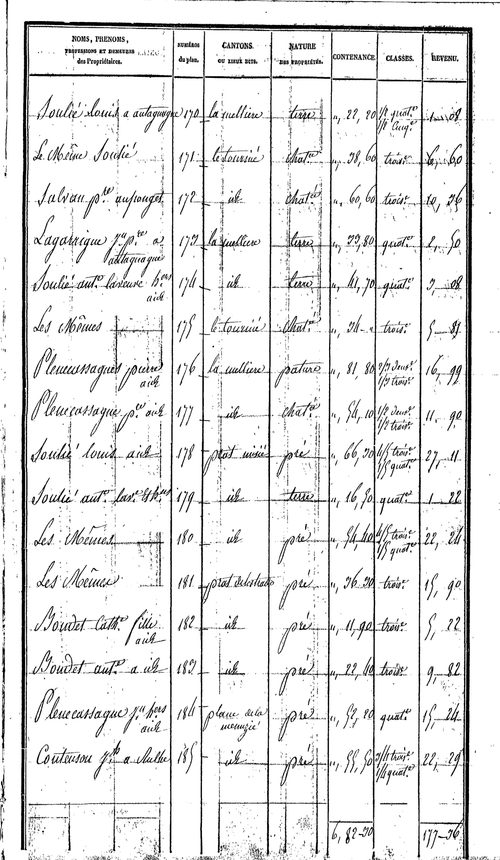 NOMS, PRENOMS, PROFESSIONS ET DEMEURES des Propriétaires. NUMÉROS du plan. CANTONS. OU LIEUX DITS. NATURE DES PROPRIÉTÉS. CONTENANCE. CLASSES. REVENU.
Soulié louis a autagnague 170 la melliere terre ,, 22, 20 1/2 quat.e 1/2 Cinq.e 1 - 08
Le Même Soulié 171 le tournié chat.e ,, 38, 60 trois.e 6, 60
Salvan p.re 172 id chat.e ,, 60, 60 trois.e 10, 36
Lagarrigue j.n p.re a autagnague 173 la melliere terre ,, 33, 80 quat.e 2, 50
Soulié ant.e la veuve h.ers aud 174 id terre ,, 41, 70 quat.e 3, 08
Les Mêmes 175 le tournié chat.e ,, 34 - ,, trois.e 5 - 81
Plenecassagnes pierre aud 176 la melliere pature ,, 81, 80 2/3 deux.e 1/3 trois.e 16, 99
Plenecassagne p.re aud 177 id chat.e ,, 54, 10 1/2 deux.e 1/2 trois.e 11, 90
Soulié louis aud 178 prat pré ,, 66, 30 4/5 trois.e 1/5 quat.e 27, 11
Soulié ant.e la v.e & h.ers 179 id terre ,, 16, 50 quat.e 1, 22
Les Mêmes 180 id pré ,, 54, 40 4/5 trois.e 1/5 quat.e 22, 24
Les Mêmes 181 prat pré ,, 36 30 trois.e 15, 90
Boudet Cath.e fille aud 182 id pré ,, 11, 90 trois.e 5, 22
Boudet ant.e a id 183 id pré ,, 22, 40 trois.e 9, 82
Plenecassagne j.n h.ers aud 184 plane de la pré ,, 52, 20 quat.e 15, 24
Coutenson j.h a 185 id pré ,, 55, 50 3/4 trois.e 1/4 quat.e 22, 25
6, 82 - 30 177 - 36